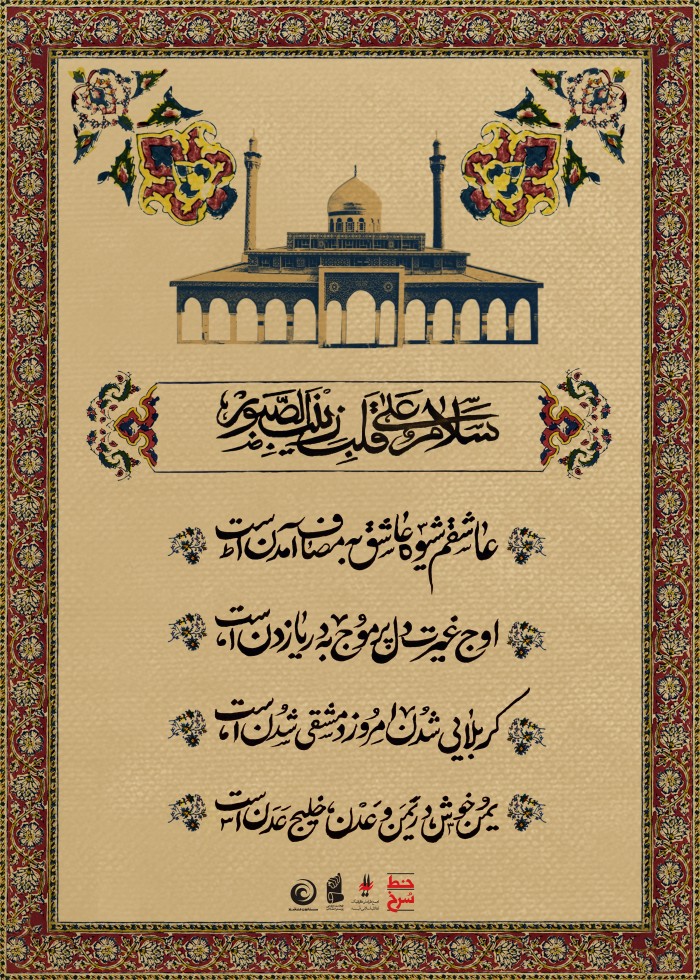 سلام علی قلب زینب الصبور
عاشقم شیوه عاشق به مصاف آمدن است
اوج غیرت دل پر موج به دریا زدن است
کربلایی شدن امروز دمشقی شدن است
یمن خوش در یمن و عدن، خلیج عدن است
خط سرخ